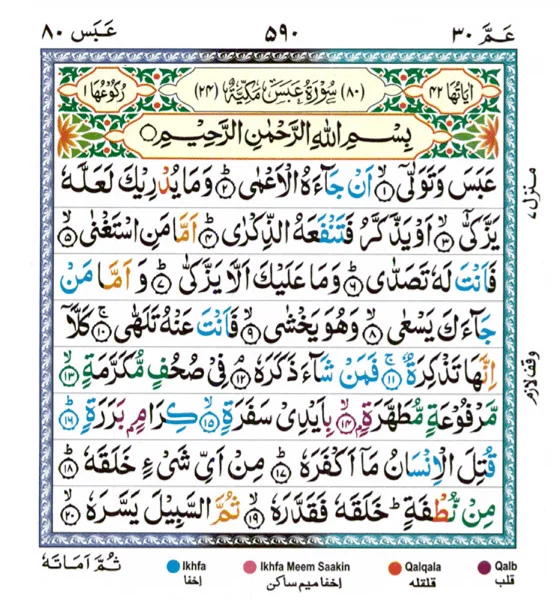 عَمَّ ٣٠ ٥٩٠ عَبَسَ ٨٠
اٰيَاتُهَا ٤٢ (٨٠) سُوْرَةُ عَبَسَ مَكِّيَّةٌ (٢٤) رُكُوْعُهَا ١
بِسْمِ اللّٰهِ الرَّحْمٰنِ الرَّحِيْمِ
عَبَسَ وَتَوَلّٰىٓ ۙ﴿١﴾ اَنْ جَآءَهُ الْاَعْمٰى ؕ﴿٢﴾ وَمَا يُدْرِيْكَ لَعَلَّهٗ
يَزَّكّٰىٓ ۙ﴿٣﴾ اَوْ يَذَّكَّرُ فَتَنْفَعَهُ الذِّكْرٰى ؕ﴿٤﴾ اَمَّا مَنِ اسْتَغْنٰى ۙ﴿٥﴾
فَاَنْتَ لَهٗ تَصَدّٰى ؕ﴿٦﴾ وَمَا عَلَيْكَ اَلَّا يَزَّكّٰى ؕ﴿٧﴾ وَاَمَّا مَنْ
جَآءَكَ يَسْعٰى ۙ﴿٨﴾ وَهُوَ يَخْشٰى ۙ﴿٩﴾ فَاَنْتَ عَنْهُ تَلَهّٰى ۚ﴿١٠﴾ كَلَّآ
اِنَّهَا تَذْكِرَةٌ ۚ﴿١١﴾ فَمَنْ شَآءَ ذَكَرَهٗ ۘ﴿١٢﴾ فِىْ صُحُفٍ مُّكَرَّمَةٍ ۙ﴿١٣﴾
مَّرْفُوْعَةٍ مُّطَهَّرَةٍۭ ۙ﴿١٤﴾ بِاَيْدِىْ سَفَرَةٍ ۙ﴿١٥﴾ كِرَامٍۭ بَرَرَةٍ ؕ﴿١٦﴾
قُتِلَ الْاِنْسَانُ مَآ اَكْفَرَهٗ ؕ﴿١٧﴾ مِنْ اَىِّ شَىْءٍ خَلَقَهٗ ؕ﴿١٨﴾
مِنْ نُّطْفَةٍ ؕ خَلَقَهٗ فَقَدَّرَهٗ ۙ﴿١٩﴾ ثُمَّ السَّبِيْلَ يَسَّرَهٗ ۙ﴿٢٠﴾
منزل ٧
وقف لازم
ثُمَّ اَمَاتَهٗ
Ikhfa
إخفا
Ikhfa Meem Saakin
إخفا ميم ساكن
Qalqala
قلقله
Qalb
قلب